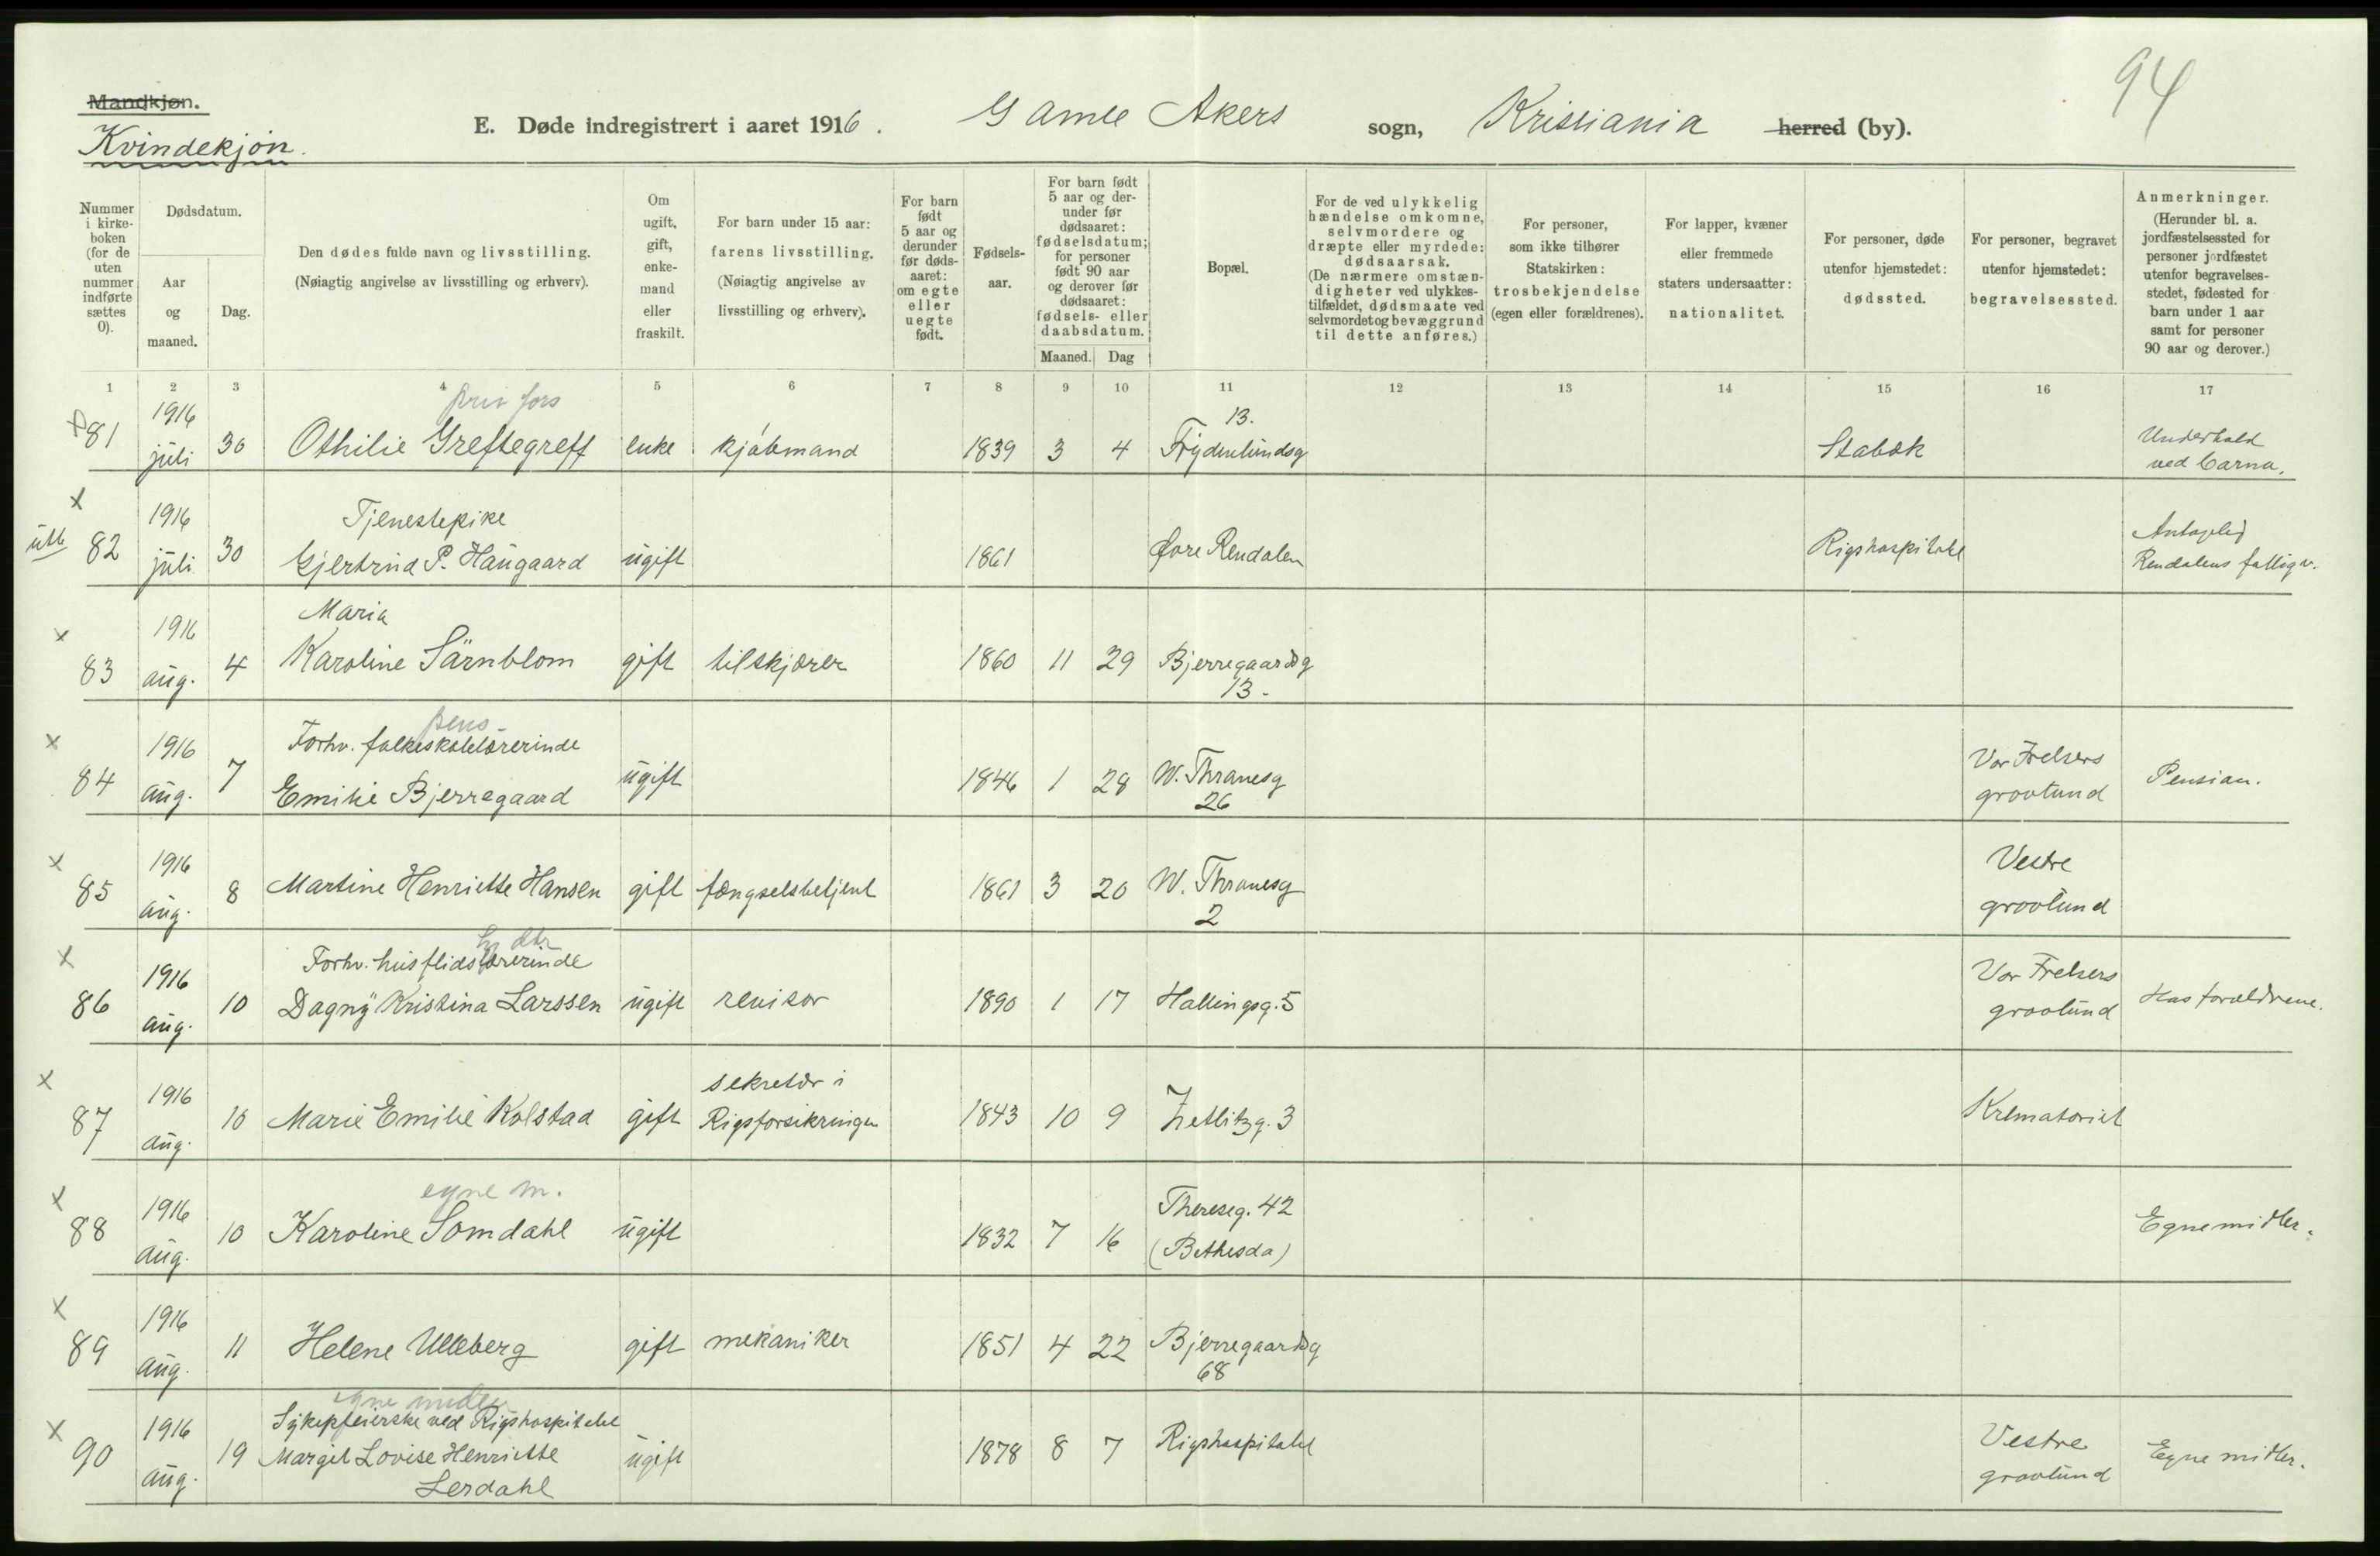 94
Mandkjøn.
Kvindekjøn.
E. Døde indregistrert i aaret 1916. Gamle Akers sogn, Kristiania herred (by).
Nummer i kirkeboken (for de uten nummer indførte sættes 0).
Dødsdatum.
Aar og maaned.
Dag.
Den dødes fulde navn og livsstilling. (Nøiagtig angivelse av livsstilling og erhverv).
Om ugift, gift, enkemand eller fraskilt.
For barn under 15 aar: farens livsstilling. (Nøiagtig angivelse av livsstilling og erhverv).
For barn født 5 aar og derunder før dødsaaret: om egte eller uegte født.
Fødselsaar.
For barn født 5 aar og derunder før dødsaaret: fødselsdatum; for personer født 90 aar og derover før dødsaaret: fødsels- eller daabsdatum.
Maaned. Dag
Bopæl.
For de ved ulykkelig hændelse omkomne, selvmordere og dræpte eller myrdede: dødsaarsak. (De nærmere omstændigheter ved ulykkestilfældet, dødsmaate ved selvmordet og bevæggrund til dette anføres.)
For personer, som ikke tilhører Statskirken: trosbekjendelse (egen eller forældrenes).
For lapper, kvæner eller fremmede staters undersaatter: nationalitet.
For personer, døde utenfor hjemstedet: dødssted.
For personer, begravet utenfor hjemstedet: begravelsessted.
Anmerkninger. (Herunder bl. a. jordfæstelsessted for personer jordfæstet utenfor begravelsesstedet, fødested for barn under 1 aar samt for personer 90 aar og derover.)
1 2 3 4 5 6 7 8 9 10 11 12 13 14 15 16 17
priv fors
81 1916 juli 30 Othilie Greftegreff enke kjøbmand 1839 3 4 Frydenlundsg 13. Stabæk Underhold ved barna.
x
utb 82 1916 juli 30 Tjenestepike Gjertrud P. Haugaard ugift 1861 Øvre Rendalen Rigshospitalet Antagelig Rendalens fattigv.
x
83 1916 aug. 4 Maria Karoline Särnblom gift tilskjærer 1860 11 29 Bjerregaardsg 13.
x
pens
84 1916 aug. 7 Forhv. folkeskolelærerinde Emilie Bjerregaard ugift 1846 1 28 W. Thranesg 26 Vor Frelsers gravlund Pension.
x
85 1916 aug. 8 Martine Henriette Hansen gift fængselsbetjent 1861 3 20 W. Thranesg 2 Vestre gravlund
x
86 1916 aug. 10 Forhv. husflidslærerinde Dagny Kristina Larssen ugift revisor 1890 1 17 Hallingsg. 5 Vor Frelsers gravlund Hos forældrene.
x
87 1916 aug. 10 Marie Emilie Kolstad gift sekretær i Rigsforsikringen 1843 10 9 Zetlitzg. 3 Krematoriet
x
egne m.
88 1916 aug. 10 Karoline Somdahl ugift 1832 7 16 Thereseg. 42 (Bethesda) Egne midler.
x
89 1916 aug. 11 Helene Ulleberg gift mekaniker 1851 4 22 Bjerregaardsg 68
x
egne midler
90 1916 aug. 19 Sykepleierske ved Rigshospitalet Margit Lovise Henriette Lerdahl ugift 1878 8 7 Rigshospitalet Vestre gravlund Egne midler.